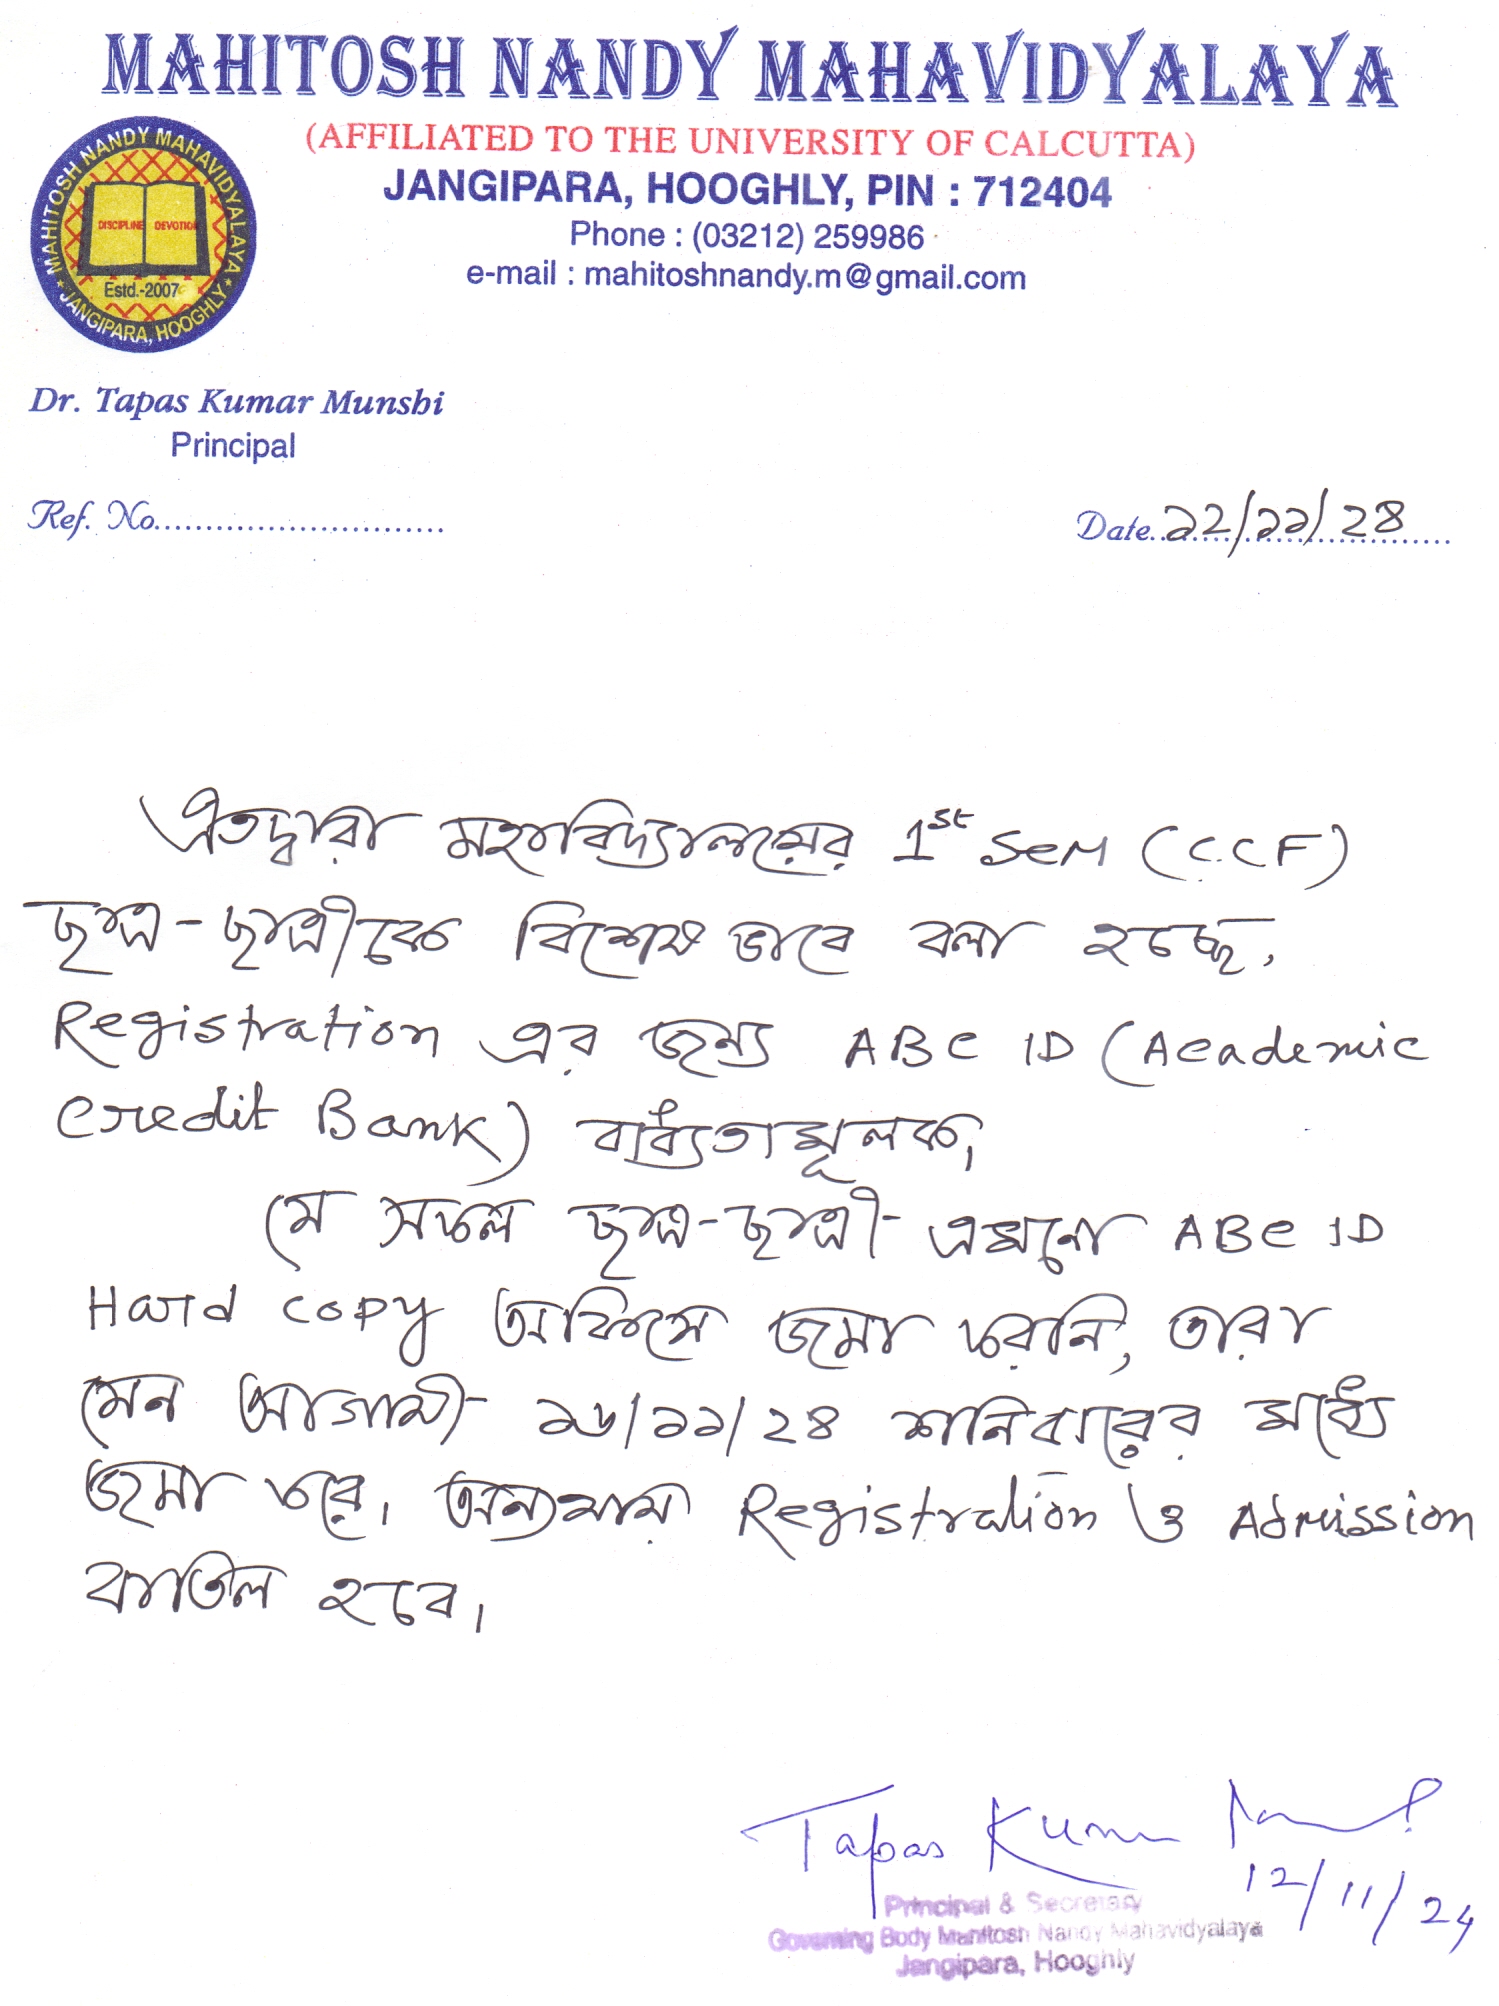 MAHITOSH NANDY MAHAVIDYALAYA
(AFFILIATED TO THE UNIVERSITY OF CALCUTTA)
JANGIPARA, HOOGHLY, PIN : 712404
Phone : (03212) 259986
e-mail : mahitoshnandy.m@gmail.com
MAHITOSH NANDY MAHAVIDYALAYA
DISCIPLINE DEVOTION
Estd.-2007
JANGIPARA, HOOGHLY
Dr. Tapas Kumar Munshi
Principal
Ref. No.
Date. ১২/১১/২৪
এতদ্বারা মহাবিদ্যালয়ের 1st Sem (C.C.F)
ছাত্র-ছাত্রীকে বিশেষ ভাবে বলা হচ্ছে,
Registration এর জন্য ABC ID (Academic
Credit Bank) বাধ্যতামূলক,
যে সকল ছাত্র-ছাত্রী এখনো ABC ID
Hard copy অফিসে জমা করেনি, তারা
যেন আগামী ১৬/১১/২৪ শনিবারের মধ্যে
জমা করে। অন্যথায় Registration ও Admission
বাতিল হবে।
Tapas Kumar
12/11/24
Principal & Secretary
Governing Body Mahitosh Nandy Mahavidyalaya
Jangipara, Hooghly